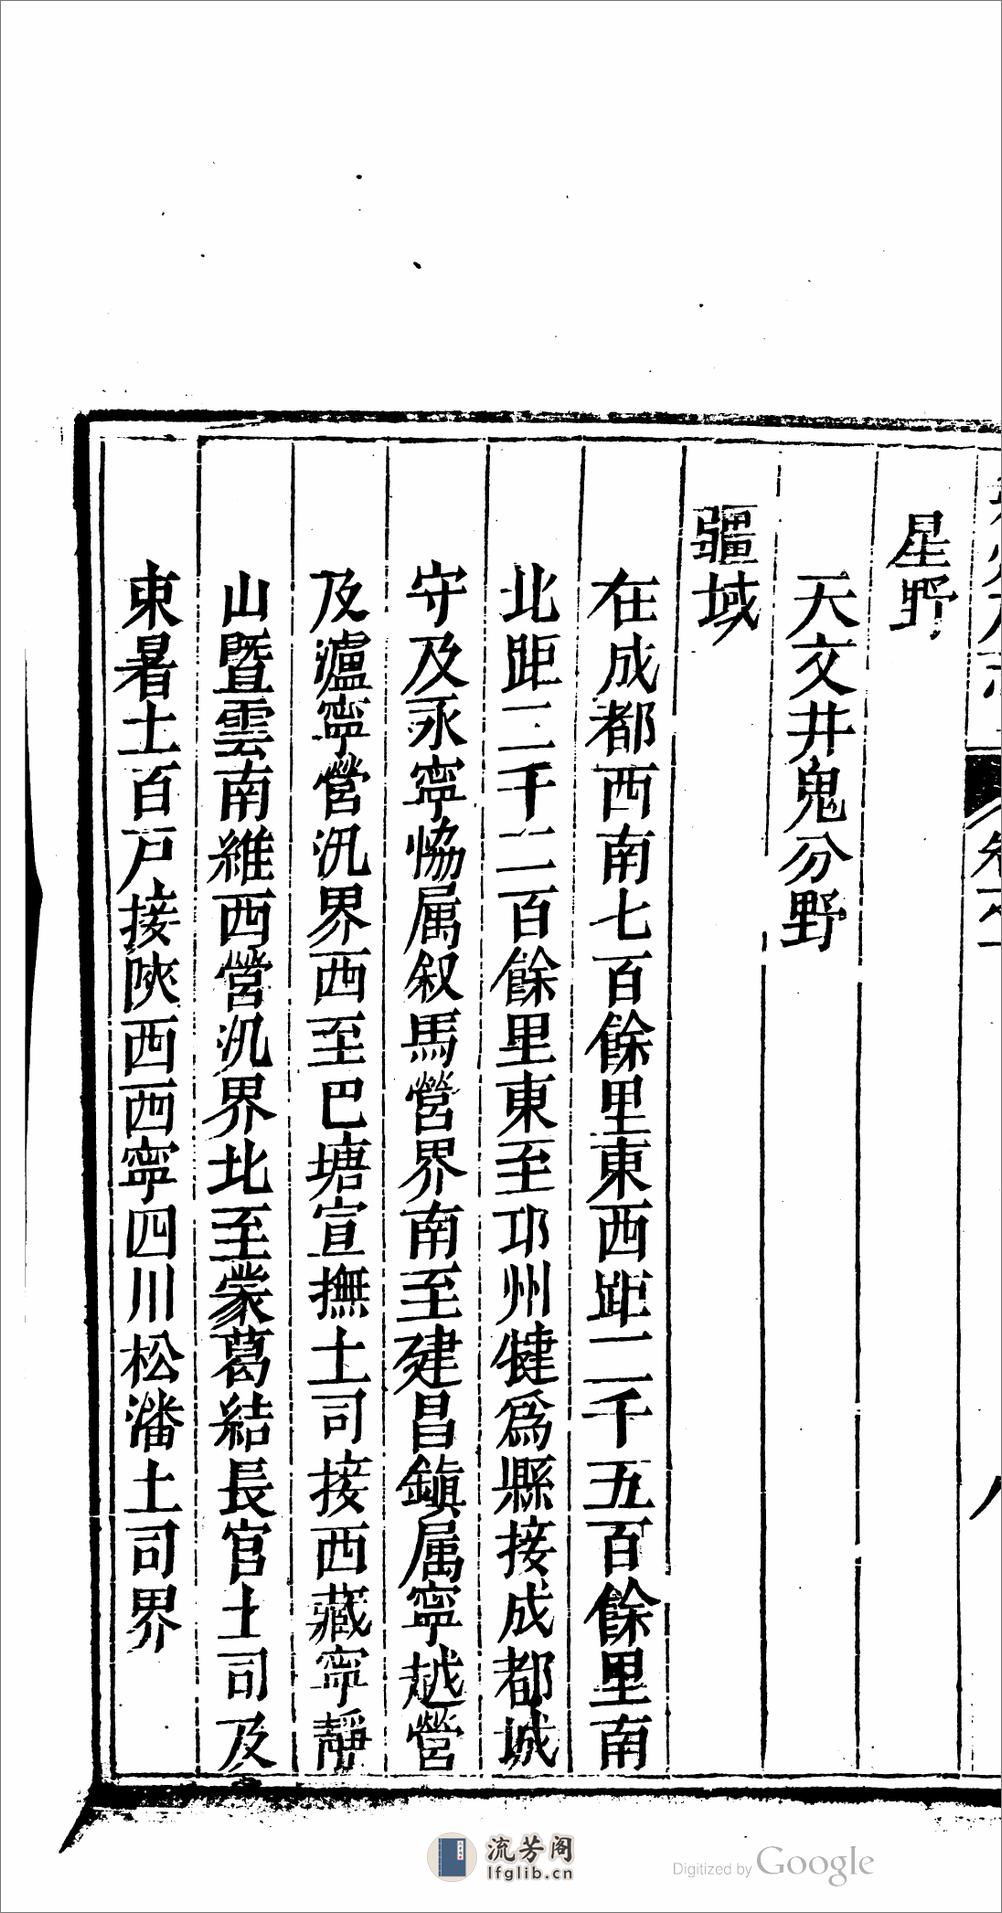 星野
天文井鬼分野
疆域
在成都西南七百餘里東西距二千五百餘里南
北距三千二百餘里東至邛州犍爲縣接成都城
守及永寧恊属叙馬營界南至建昌鎮属寧越營
及瀘寧營汛界西至巴塘宣撫土司接西藏寧靜
山暨雲南維西營汛界北至蒙葛結長官土司及
東暑土百戸接陜西西寧四川松潘土司界
流芳阁
lfglib.cn
Digitized by Google